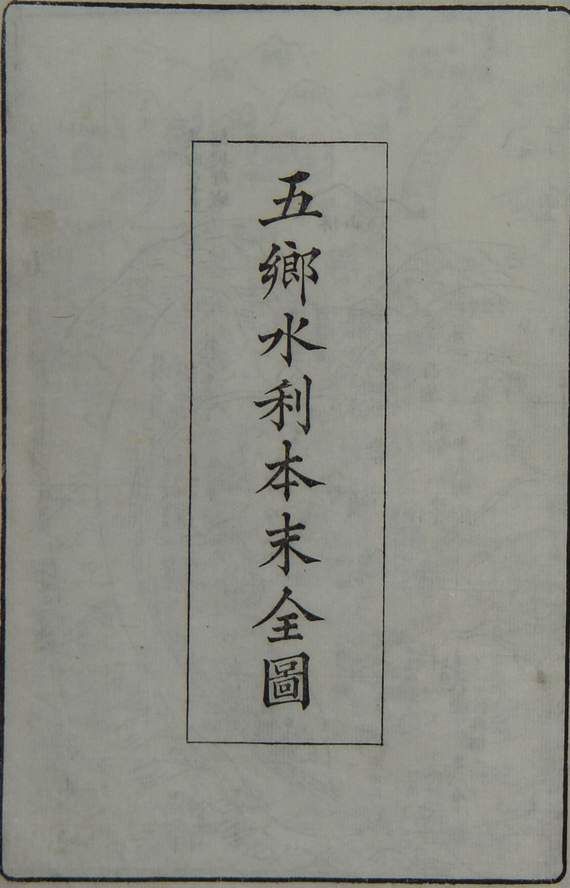 五鄉水利本末全圖